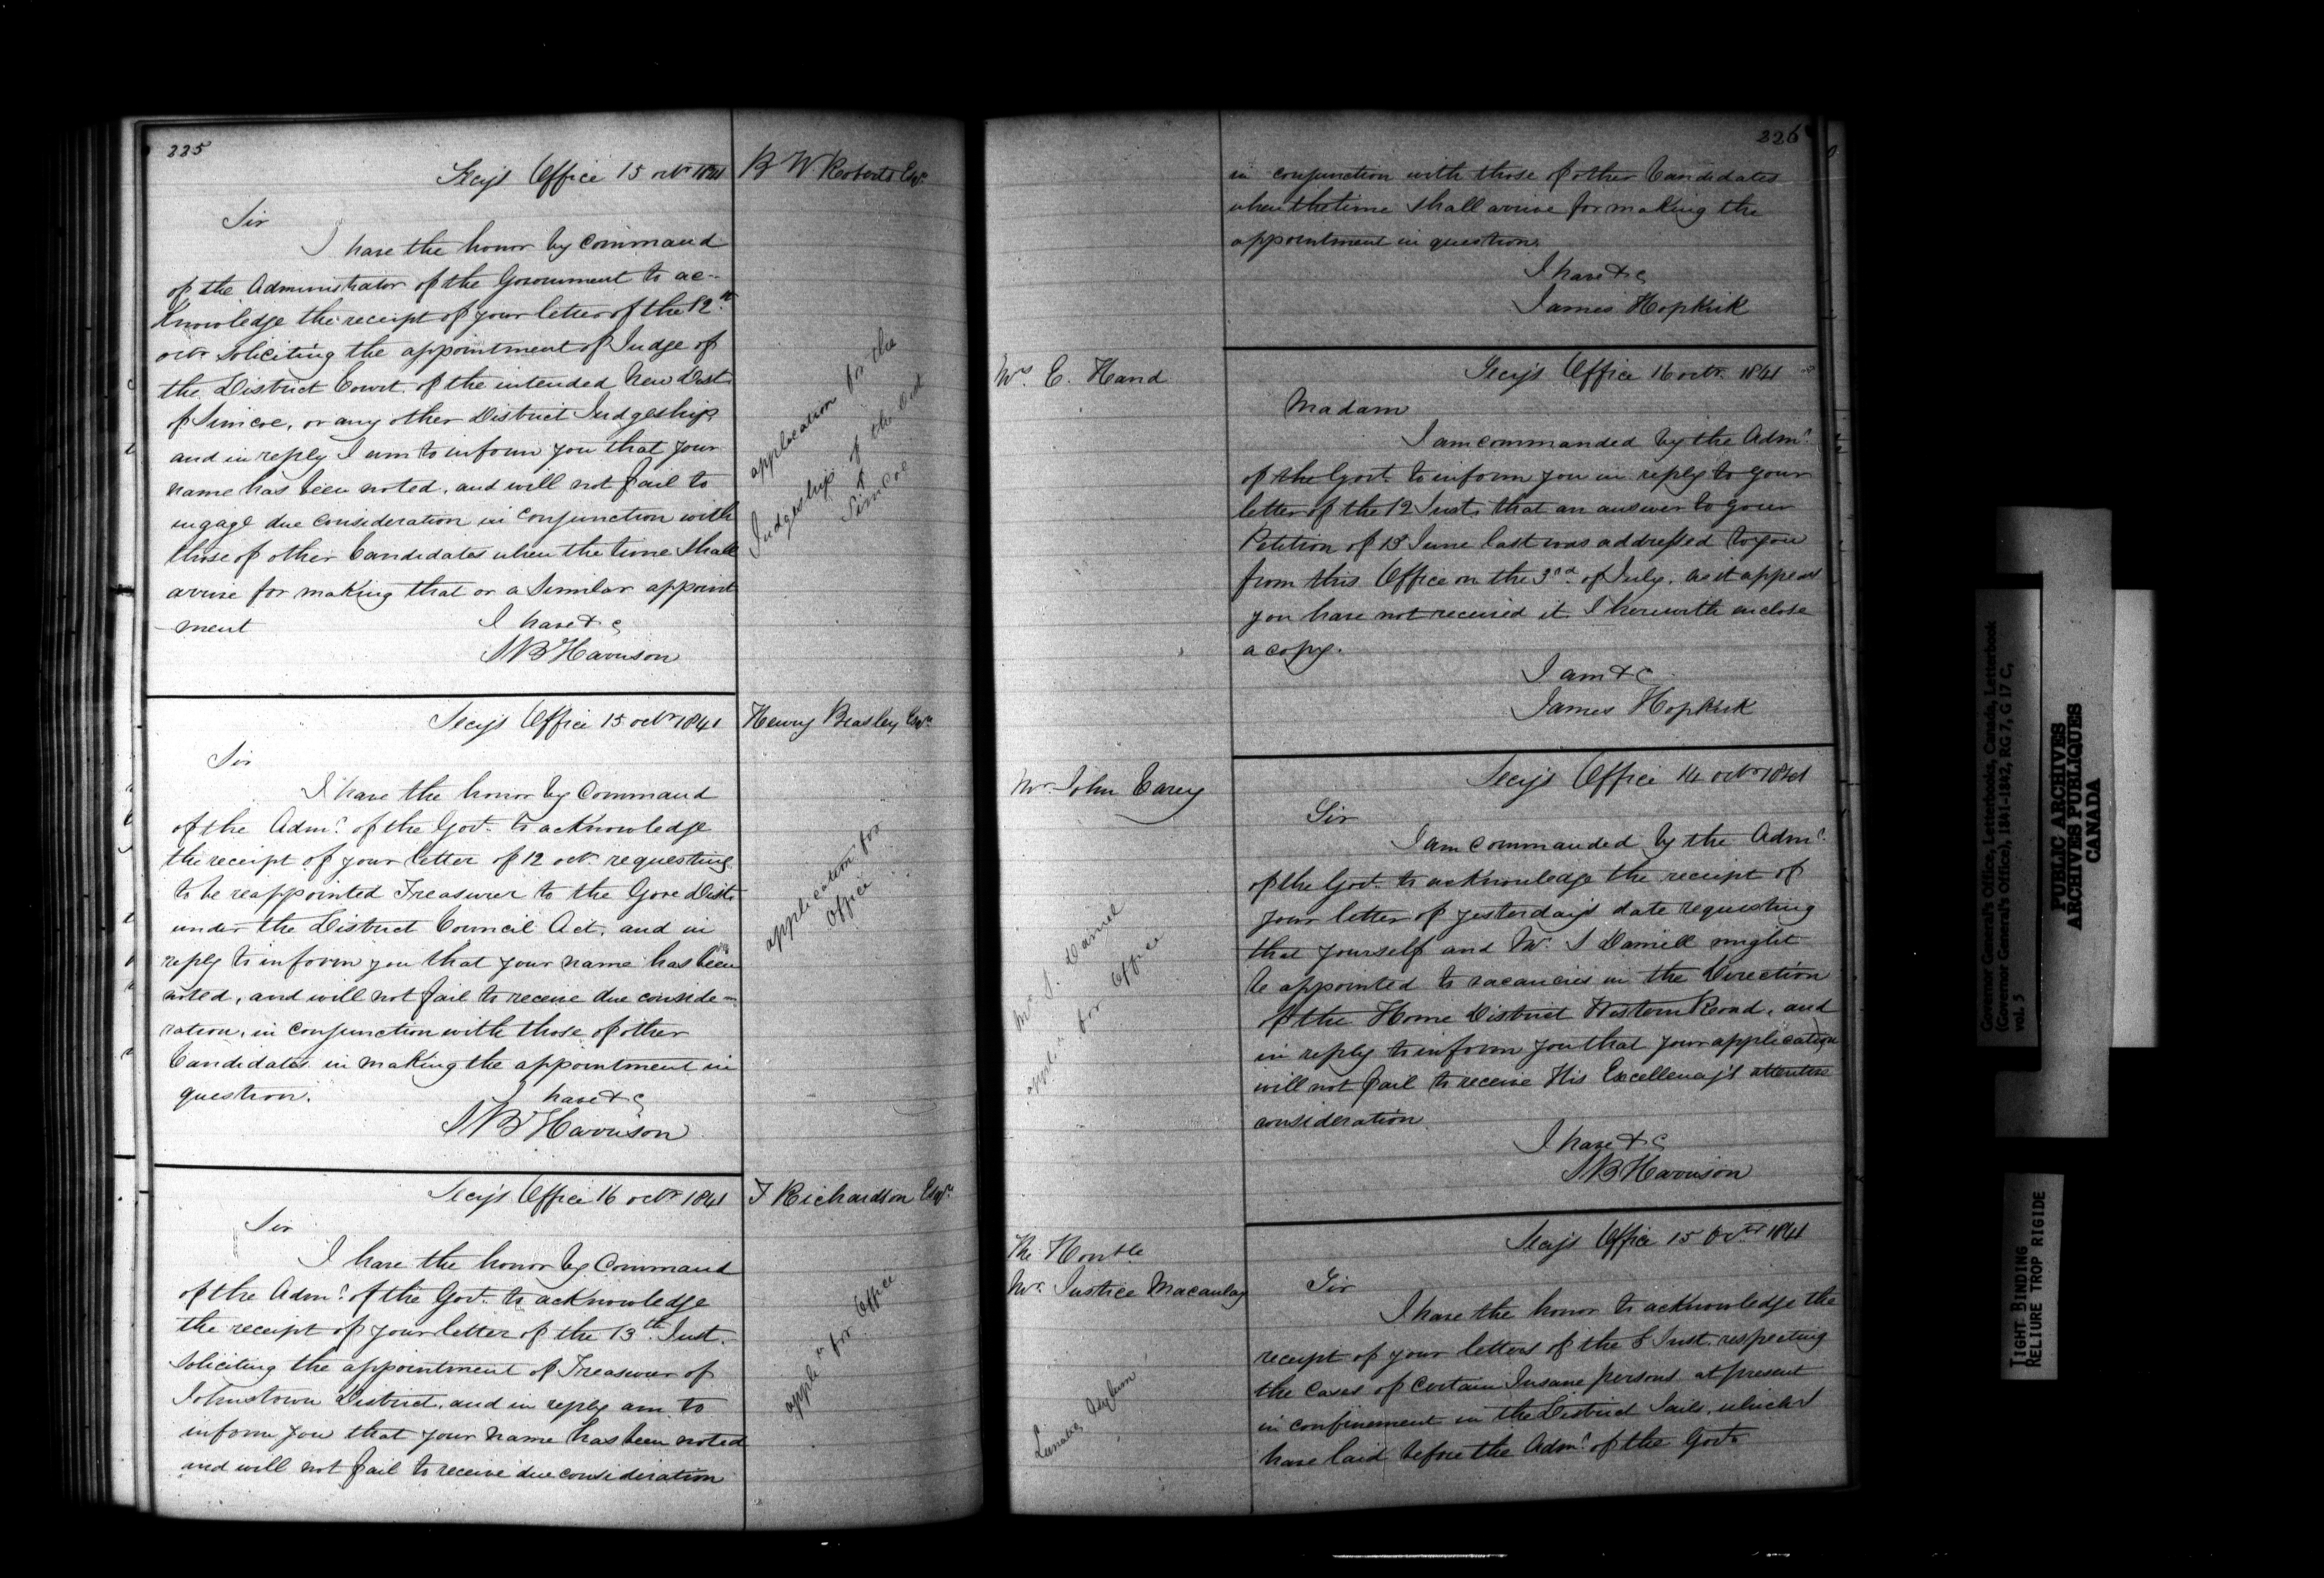 225
Secy's Office 15 octr 1841
B W Roberts Esqr.
Sir
I have the honor by Command
of the Administrator of the Government to ac-
knowledge the receipt of your letter of the 12th
octr soliciting the appointment of Judge of
the District Court of the intended New Dist.
of Simcoe, or any other District Judgeship
and in reply I am to inform you that your
name has been noted, and will not fail to
engage due consideration in conjunction with
those of other Candidates when the time shall
arrive for making that or a similar appoint
ment
I have &c
SB Harrison
application for the
Judgeship of the Dist
of
Simcoe
Secy's Office 15 octr 1841
Henry Beasley Esqr.
Sir
I have the honor by Command
of the Admr. of the Govt. to acknowledge
the receipt of your letter of 12 octr requesting
to be reappointed Treasurer to the Gore Dist.
under the District Council Act, and in
reply to inform you that your name has been
noted, and will not fail to receive due conside-
ration, in conjunction with those of other
Candidates in making the appointment in
question.
I have &c
SB Harrison
application for
Office
Secy's Office 16 octr 1841
F Richardson Esqr.
Sir
I have the honor by Command
of the Admr. of the Govt. to acknowledge
the receipt of your letter of the 13th Inst.
soliciting the appointment of Treasurer of
Johnstown District, and in reply am to
inform you that your name has been noted
and will not fail to receive due consideration
appln for Office
226
in conjunction with those of other Candidates
when the time shall arrive for making the
appointment in question.
I have &c
James Hopkirk
Mrs E. Hand
Secy's Office 16 octr. 1841
Madam
I am commanded by the Admr.
of the Govt. to inform you in reply to your
letter of the 12 Inst. that an answer to your
Petition of 13 June last was addressed to you
from this Office on the 3rd of July. As it appears
you have not received it I herewith enclose
a copy.
I am &c
James Hopkirk
Mr. John Carey
Secy's Office 14 octr 1841
Sir
I am commanded by the Admr.
of the Govt. to acknowledge the receipt of
your letter of yesterday's date requesting
that yourself and Mr. S Daniell might
be appointed to vacancies in the Direction
of the Home District Western Road, and
in reply to inform you that your application
will not fail to receive His Excellency's attentive
consideration
I have &c
SB Harrison
Mr. S. Daniel
appln for Office
The Honble
Mr. Justice Macaulay
Secy's Office 15 Octr 1841
Sir
I have the honor to acknowledge the
receipt of your letters of the 8 Inst. respecting
the cases of certain Insane persons at present
in confinement in the District Jails, which I
have laid before the Admr. of the Govt.
Lunatic Asylum
Governor General's Office, Letterbooks, Canada, Letterbook
(Governor General's Office), 1841-1842, RG 7, G 17 C,
vol. 5
PUBLIC ARCHIVES
ARCHIVES PUBLIQUES
CANADA
TIGHT BINDING
RELIURE TROP RIGIDE